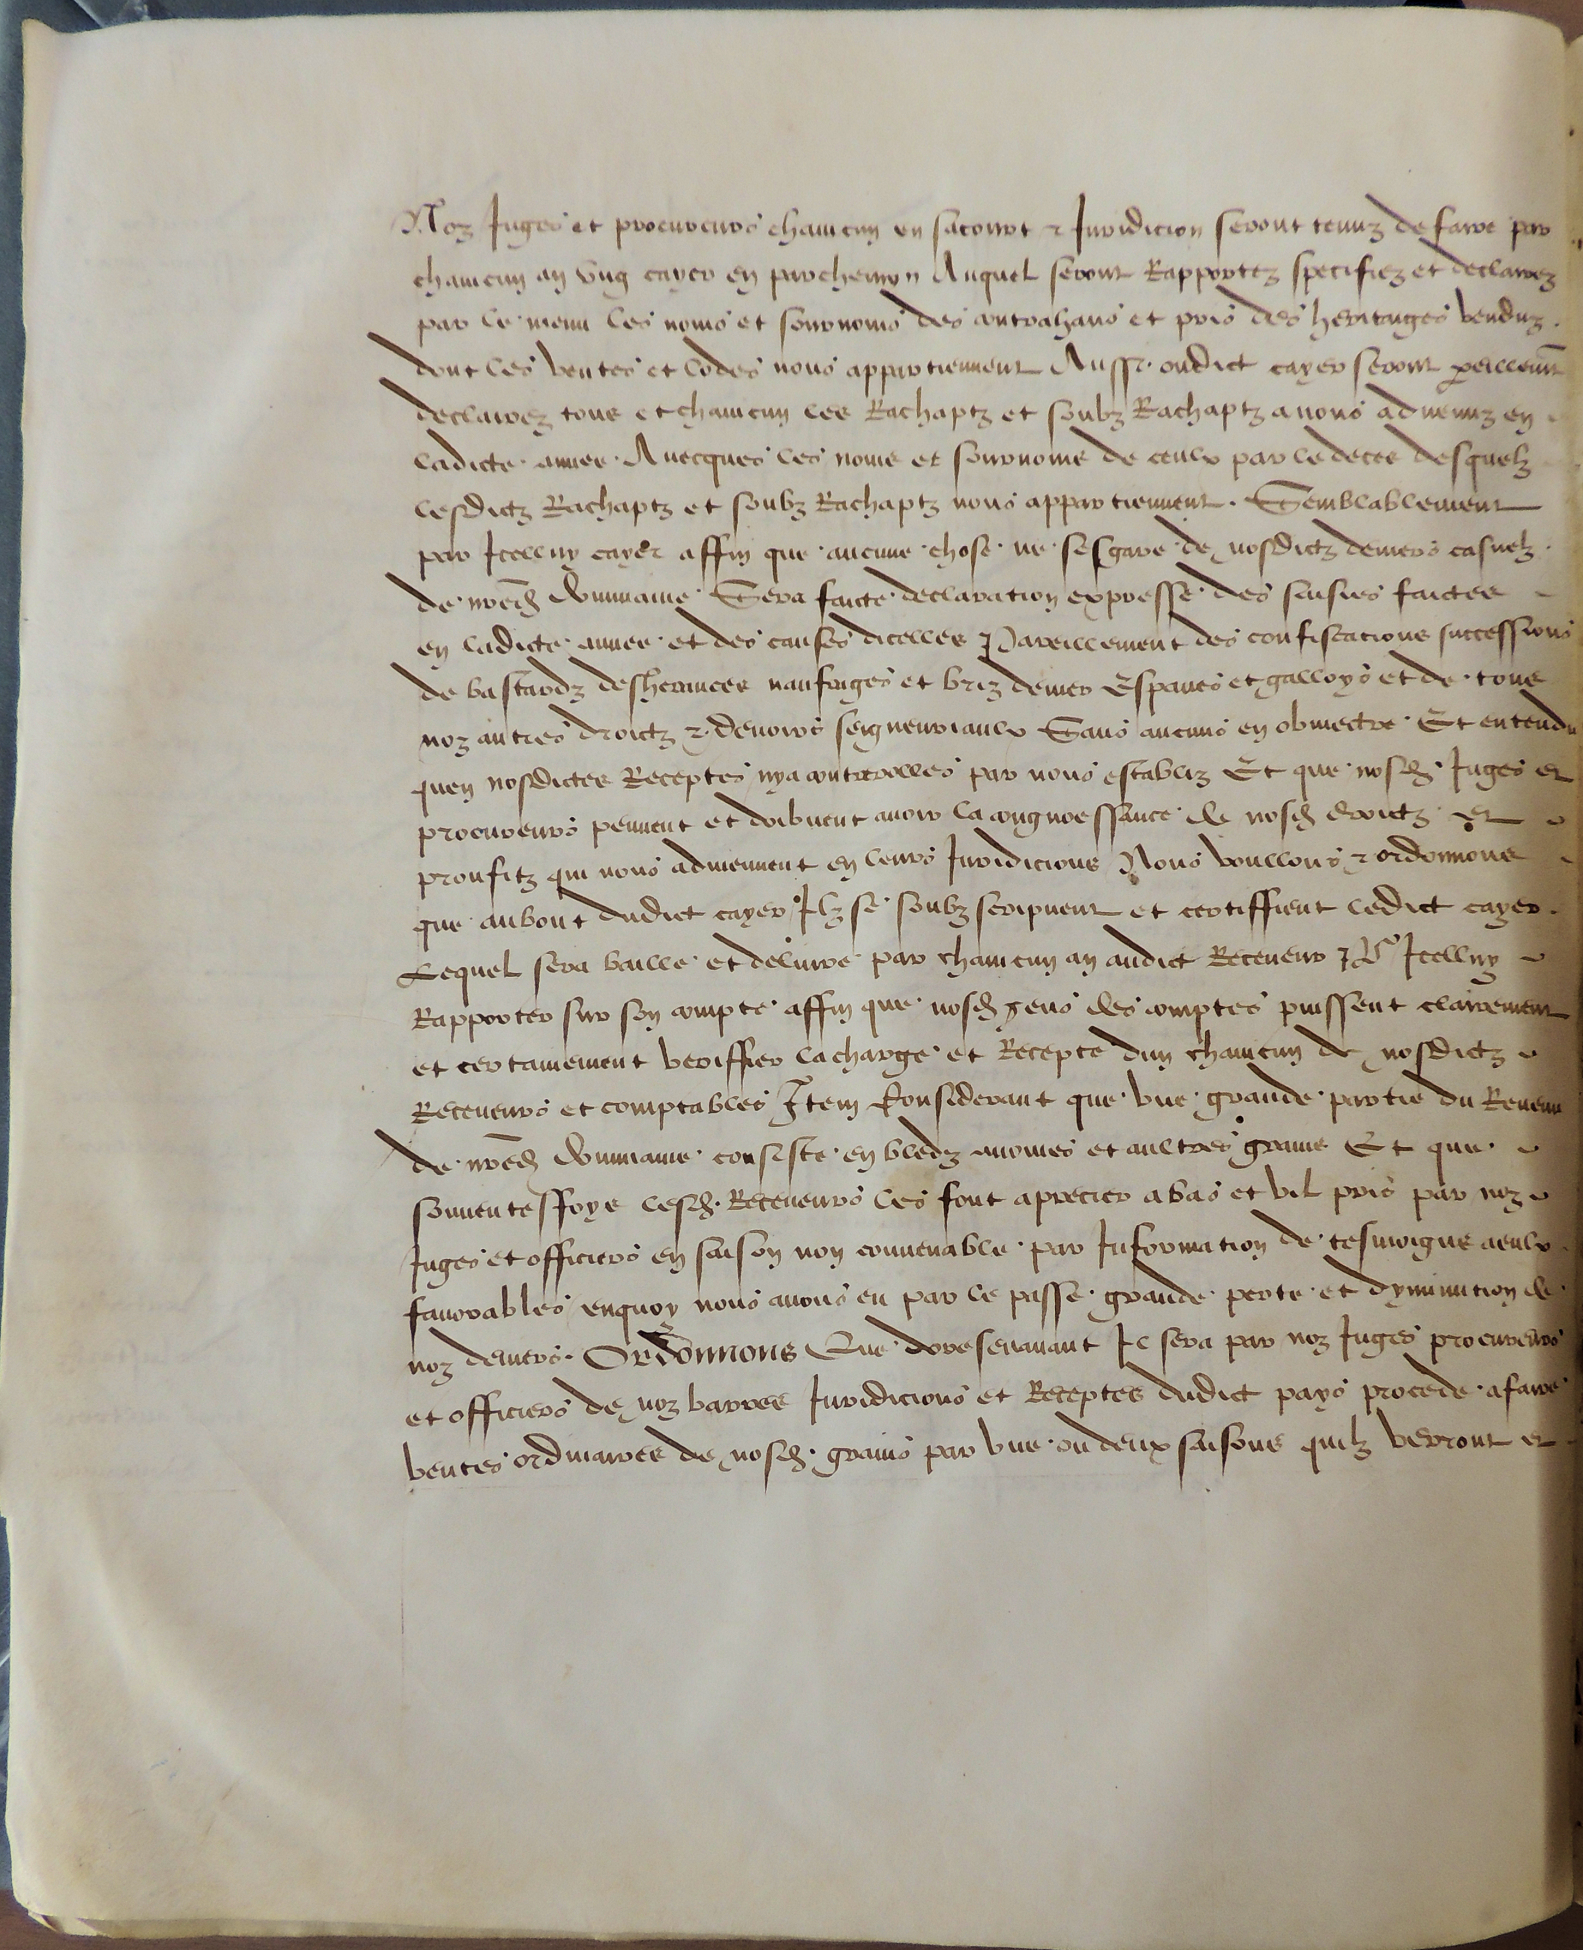 Noz Juges et procureurs chaincun en sa court & Juridicion seront tenuz de faire par
chaincun an ung cayer en parchemyn Auquel seront Rapportez specifiez et declairez
par le menu les noms et sournoms des contrahans et pris des heritaiges venduz .
dont les ventes et lodes nous appartiennent Aussi oudict cayer seront pēillemēt
declairez tous et chaincun les Rachaptz et soubz Rachaptz a nous advenuz en
ladicte annee . Avecques les noms et sournoms de ceulx par le deces desquelz
lesdictz Rachaptz et soubz Rachaptz nous appartiennent . Semblablement
par Icelluy cayer affin que aucune chose ne sesgare de nosdictz deniers casuelz .
de nrēd Dommaine Sera faicte declaration expresse des saisies faictes
en ladicte annee et des causes dicelles Pareillement des confiscations successions
de bastardz desherances naufraiges et briz de mer Espaves et galloys et de tous
noz autres droictz & devoirs seigneuriaulx Sans aucuns en obmectre Et entendu
quen nosdictes Receptes nya contrerolles par nous establiz Et que nosd Juges et
procureurs peuvent et doibvent avoir la congnoessance de nosd droictz et
proufitz qui nous adviennent en leurs Juridicions Nous voullons & ordonnons
que au bout dudict cayer Ilz se soubz scripvent et certiffient ledict cayer .
Lequel sera baille et delivre par chaincun an audict Receveur Pr Icelluy
Rapporter sur son compte affin que nosd gens des comptes puissent clairement
et certainement veriffier la charge et Recepte dun chaincun de nosdictz
Receveurs et comptables Item Considerant que une grande partie du Revenu
de nrēd Dommaine consiste en bledz avoines et aultres grains Et que
souventesffoys lesd . Receveurs les font aprecier a bas et vil pris par noz
Juges et officiers en saison non convenable par Information de tesmoigns a eulx
favorables enquoy nous avons eu par le passe grande perte et dyminution de
noz deniers . Ordonnons Que doresenavant Il sera par noz Juges procureurs
et officiers de noz barres Juridicions et Receptes dudict pays procede a faire
ventes ordinaires de nosd . grains par une ou deux saisons quilz verront et